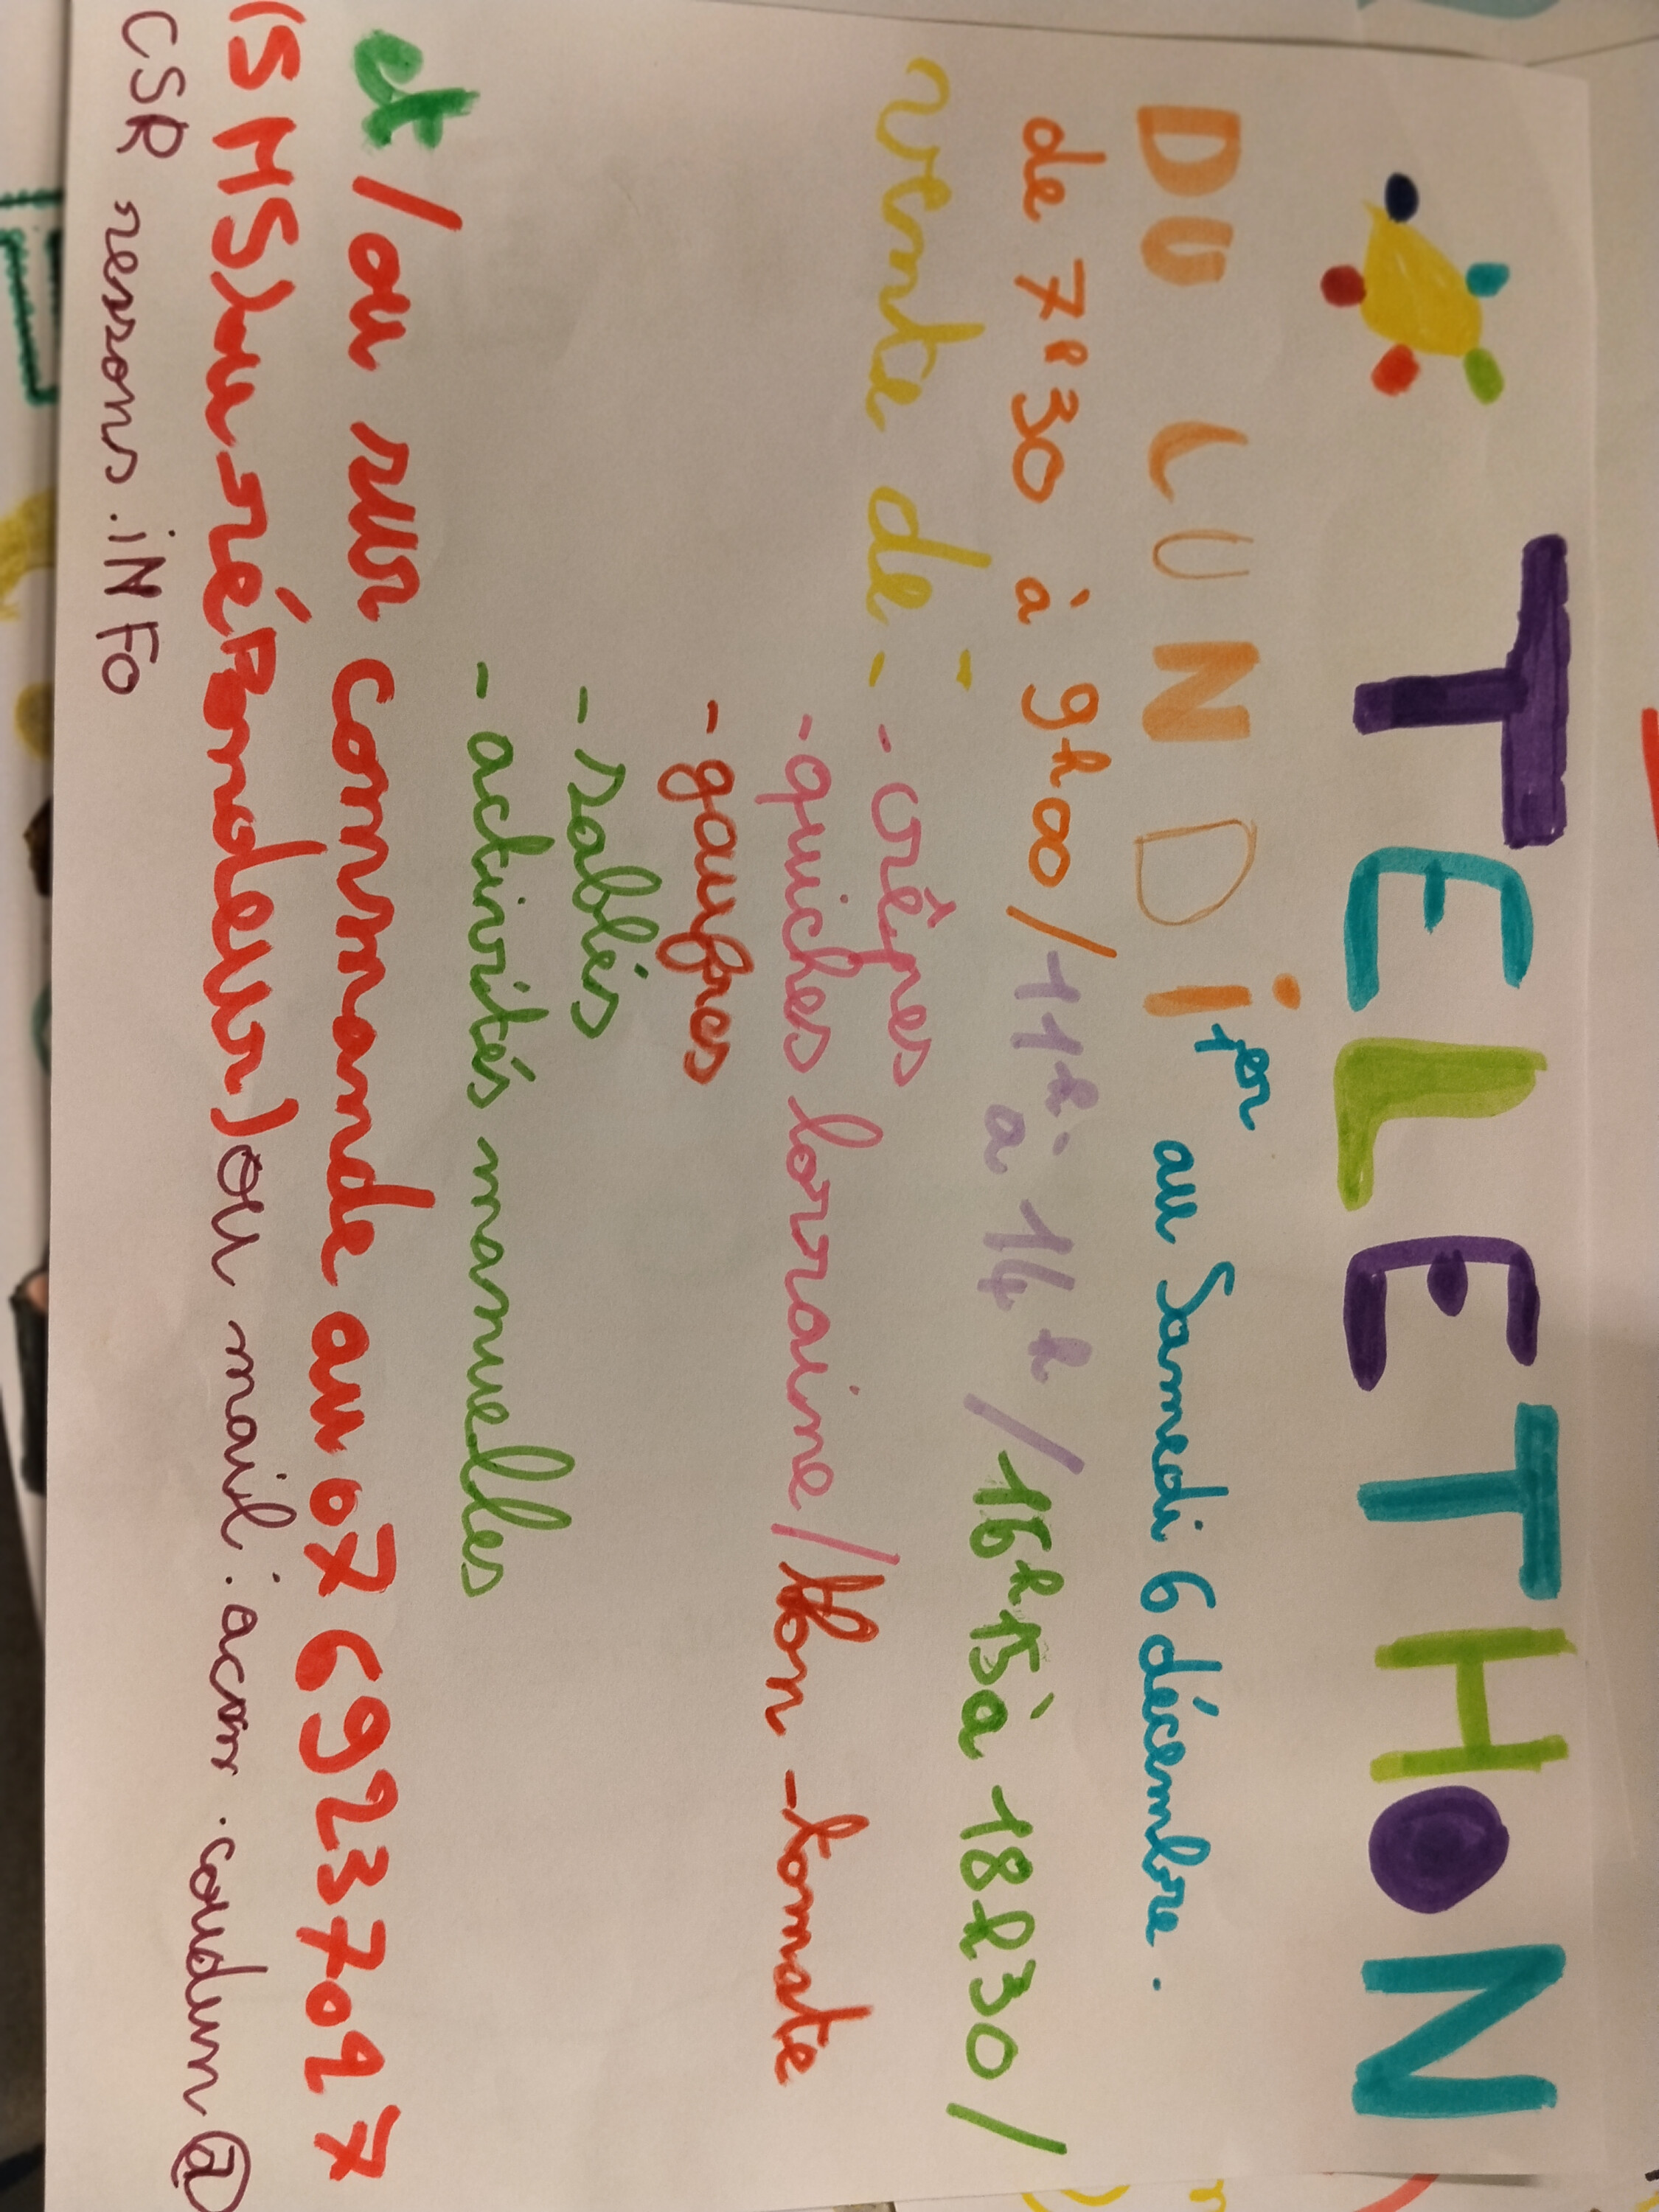 TELETHON
DU LUNDi 1er au Samedi 6 décembre.
de 7h30 à 9h00/11h à 14h/16h15à 18h30/
vente de : - crêpes
- quiches lorraine/thon-tomate
- gaufres
- sablés
- activités manuelles
et/ou sur commande au 07 69237097
(SMS)ou répondeur) ou mail : acm.coudun@
CSR ressons.iNFo